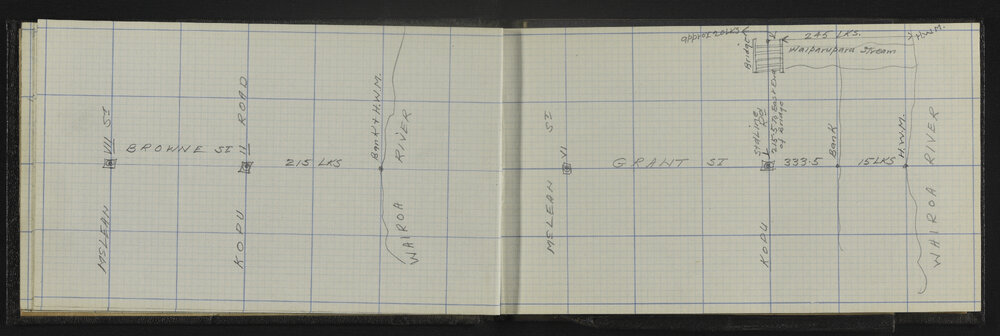 McLEAN VII ST
BROWNE ST
KOPU II ROAD
215 LKS
Bank & H.W.M.
WAIROA RIVER
McLEAN VI ST
GRANT ST
KOPU
RD
215.5 to East End
of Bridge
Bridge
approx 20 LKS
245 LKS.
H.W.M.
Waiparupara Stream
333.5
Bank
15 LKS
H.W.M.
WAIROA RIVER